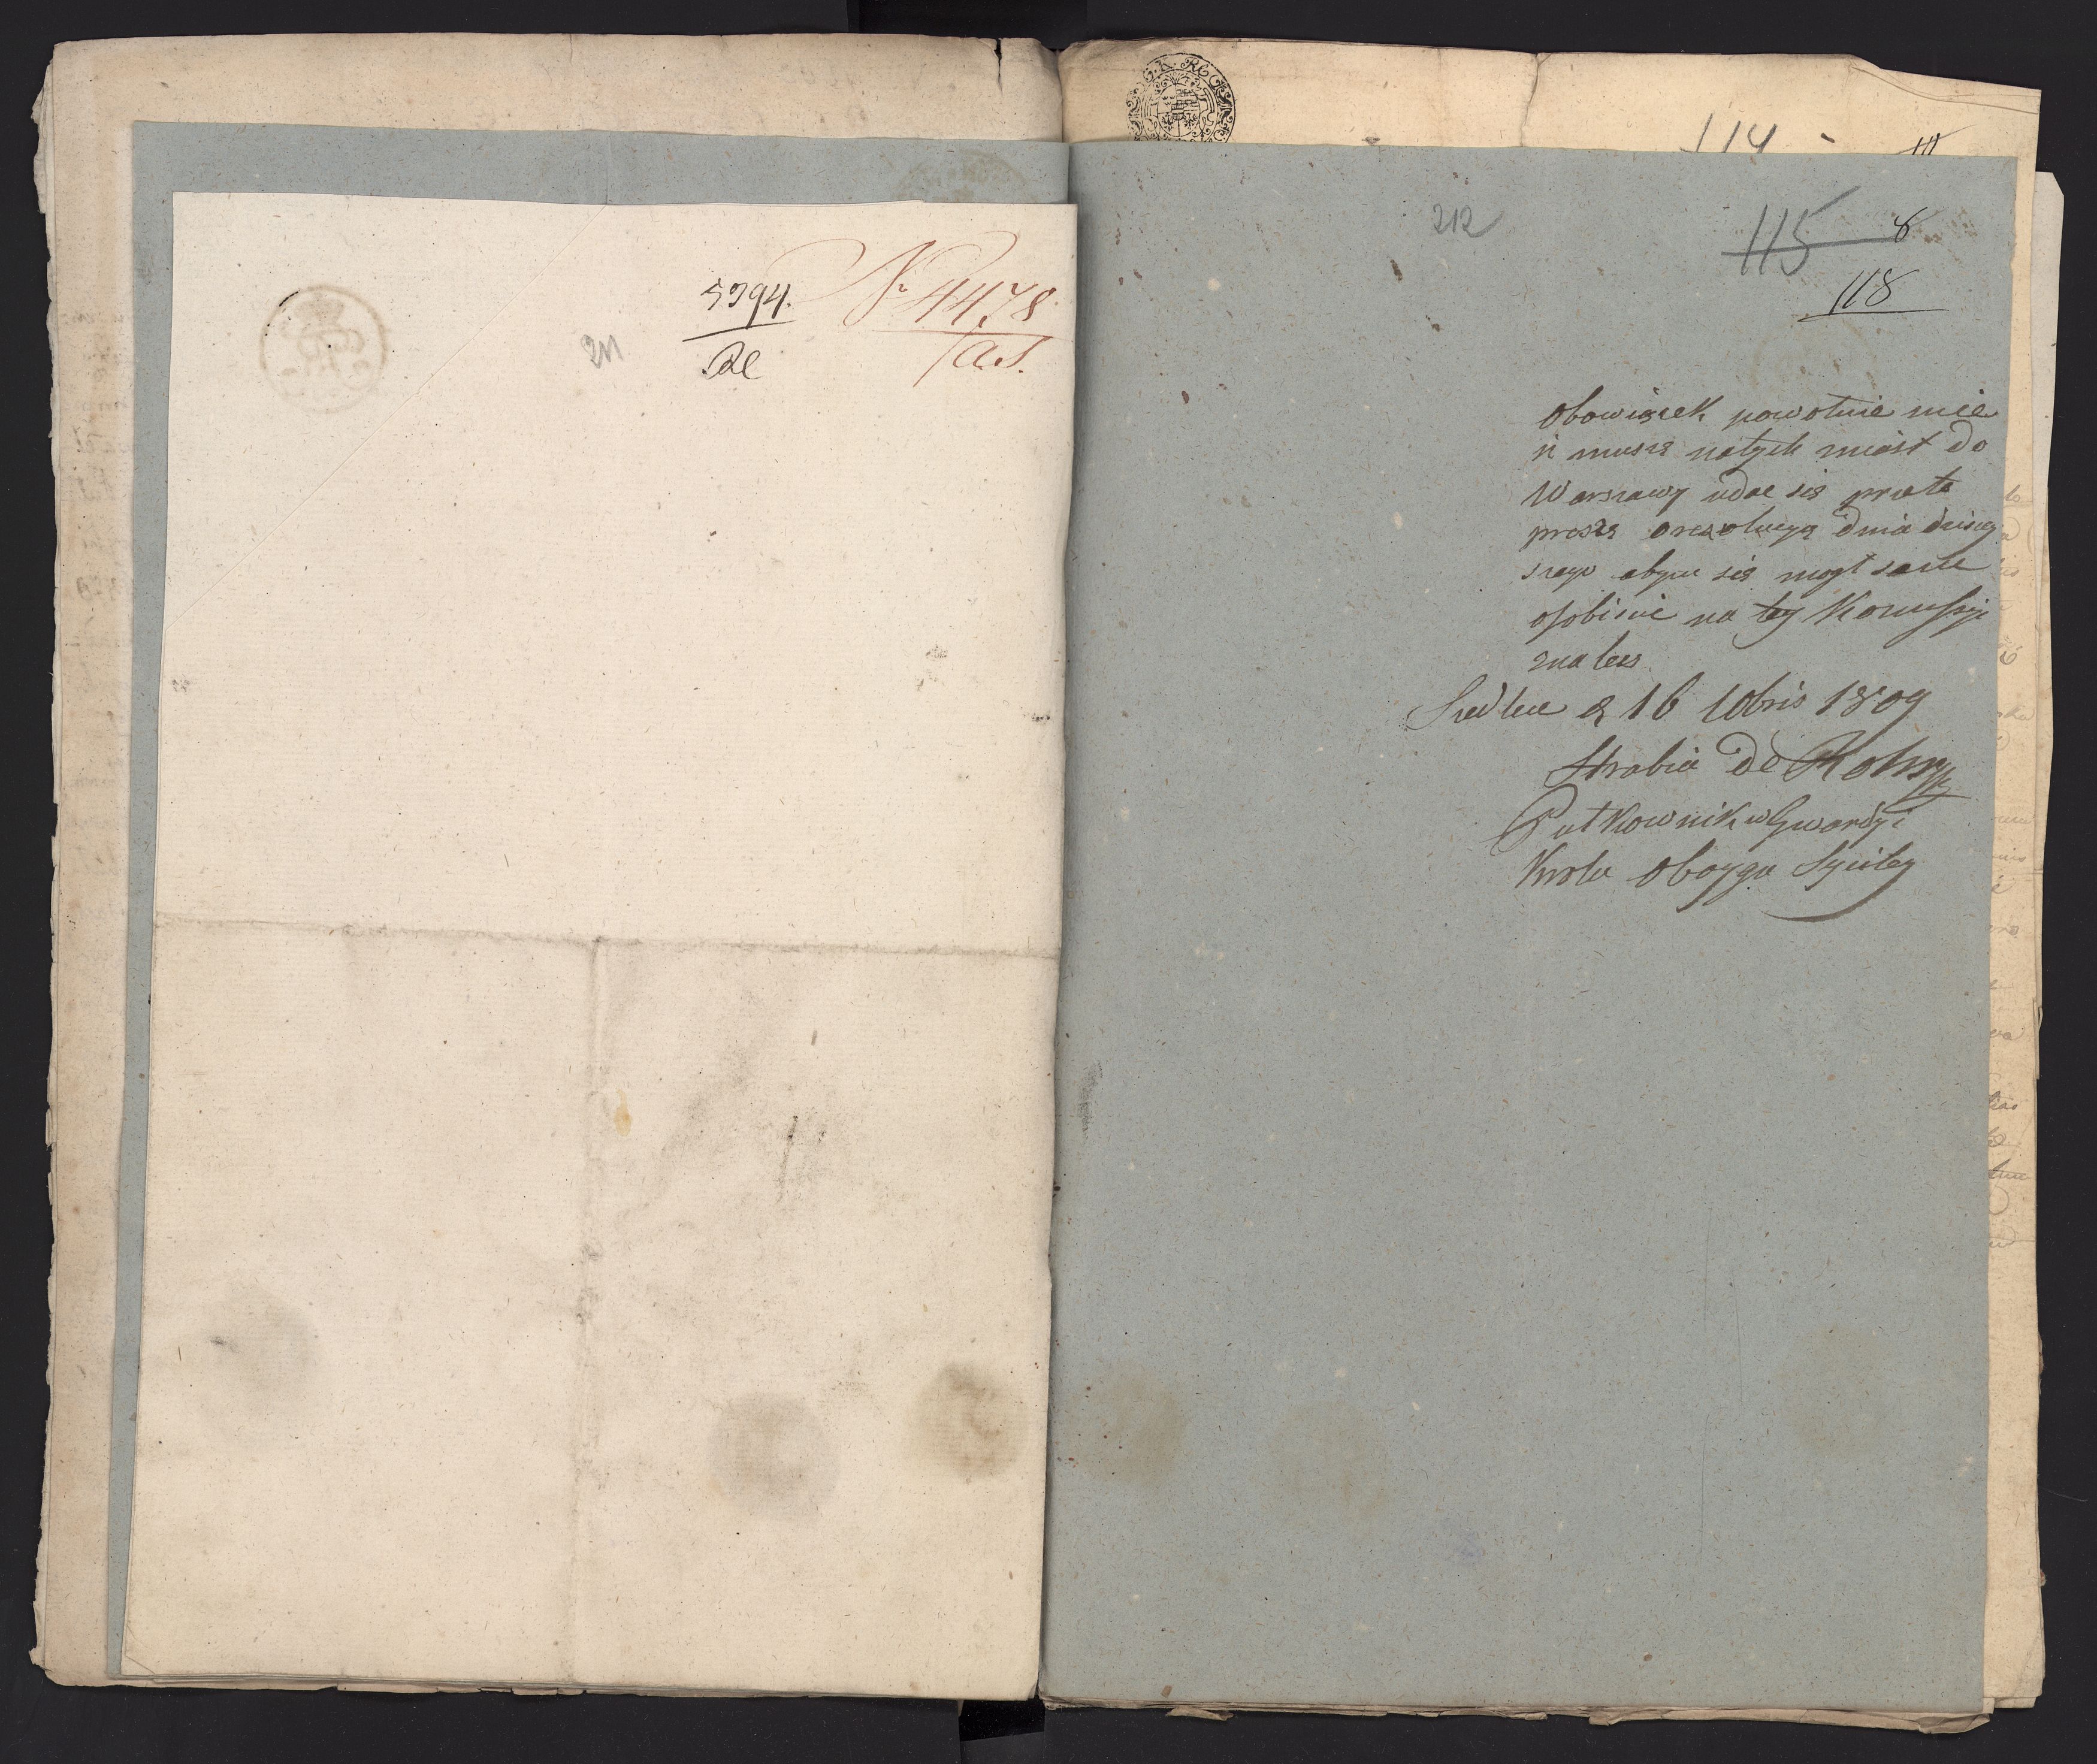 5394.
Æ
N 4478
211
114
212
115 8
118
Obowiązek powołuie mie
ii muszę natych miast do
Warszawy udać się przeto
proszę o rezolucyą dnia dzisiey
szego abym się mógł sam
osobiscie na tey Komissyi
znaleś
Siedlce d 16 10bris 1809
Hrabia de
Pułkownik w Gwardyi
Krola Oboyga Syciley